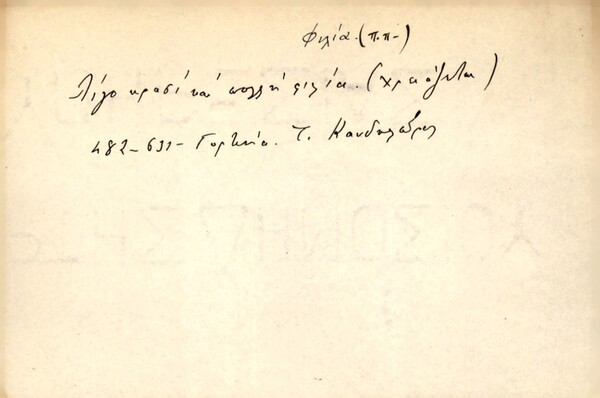 Φιλία. (π.π-)
Λίγο κρασί καί πολλή φιλία. (χρειάζεται)
482-631- Γορτυνία. Τ. Κανδηλῶρος